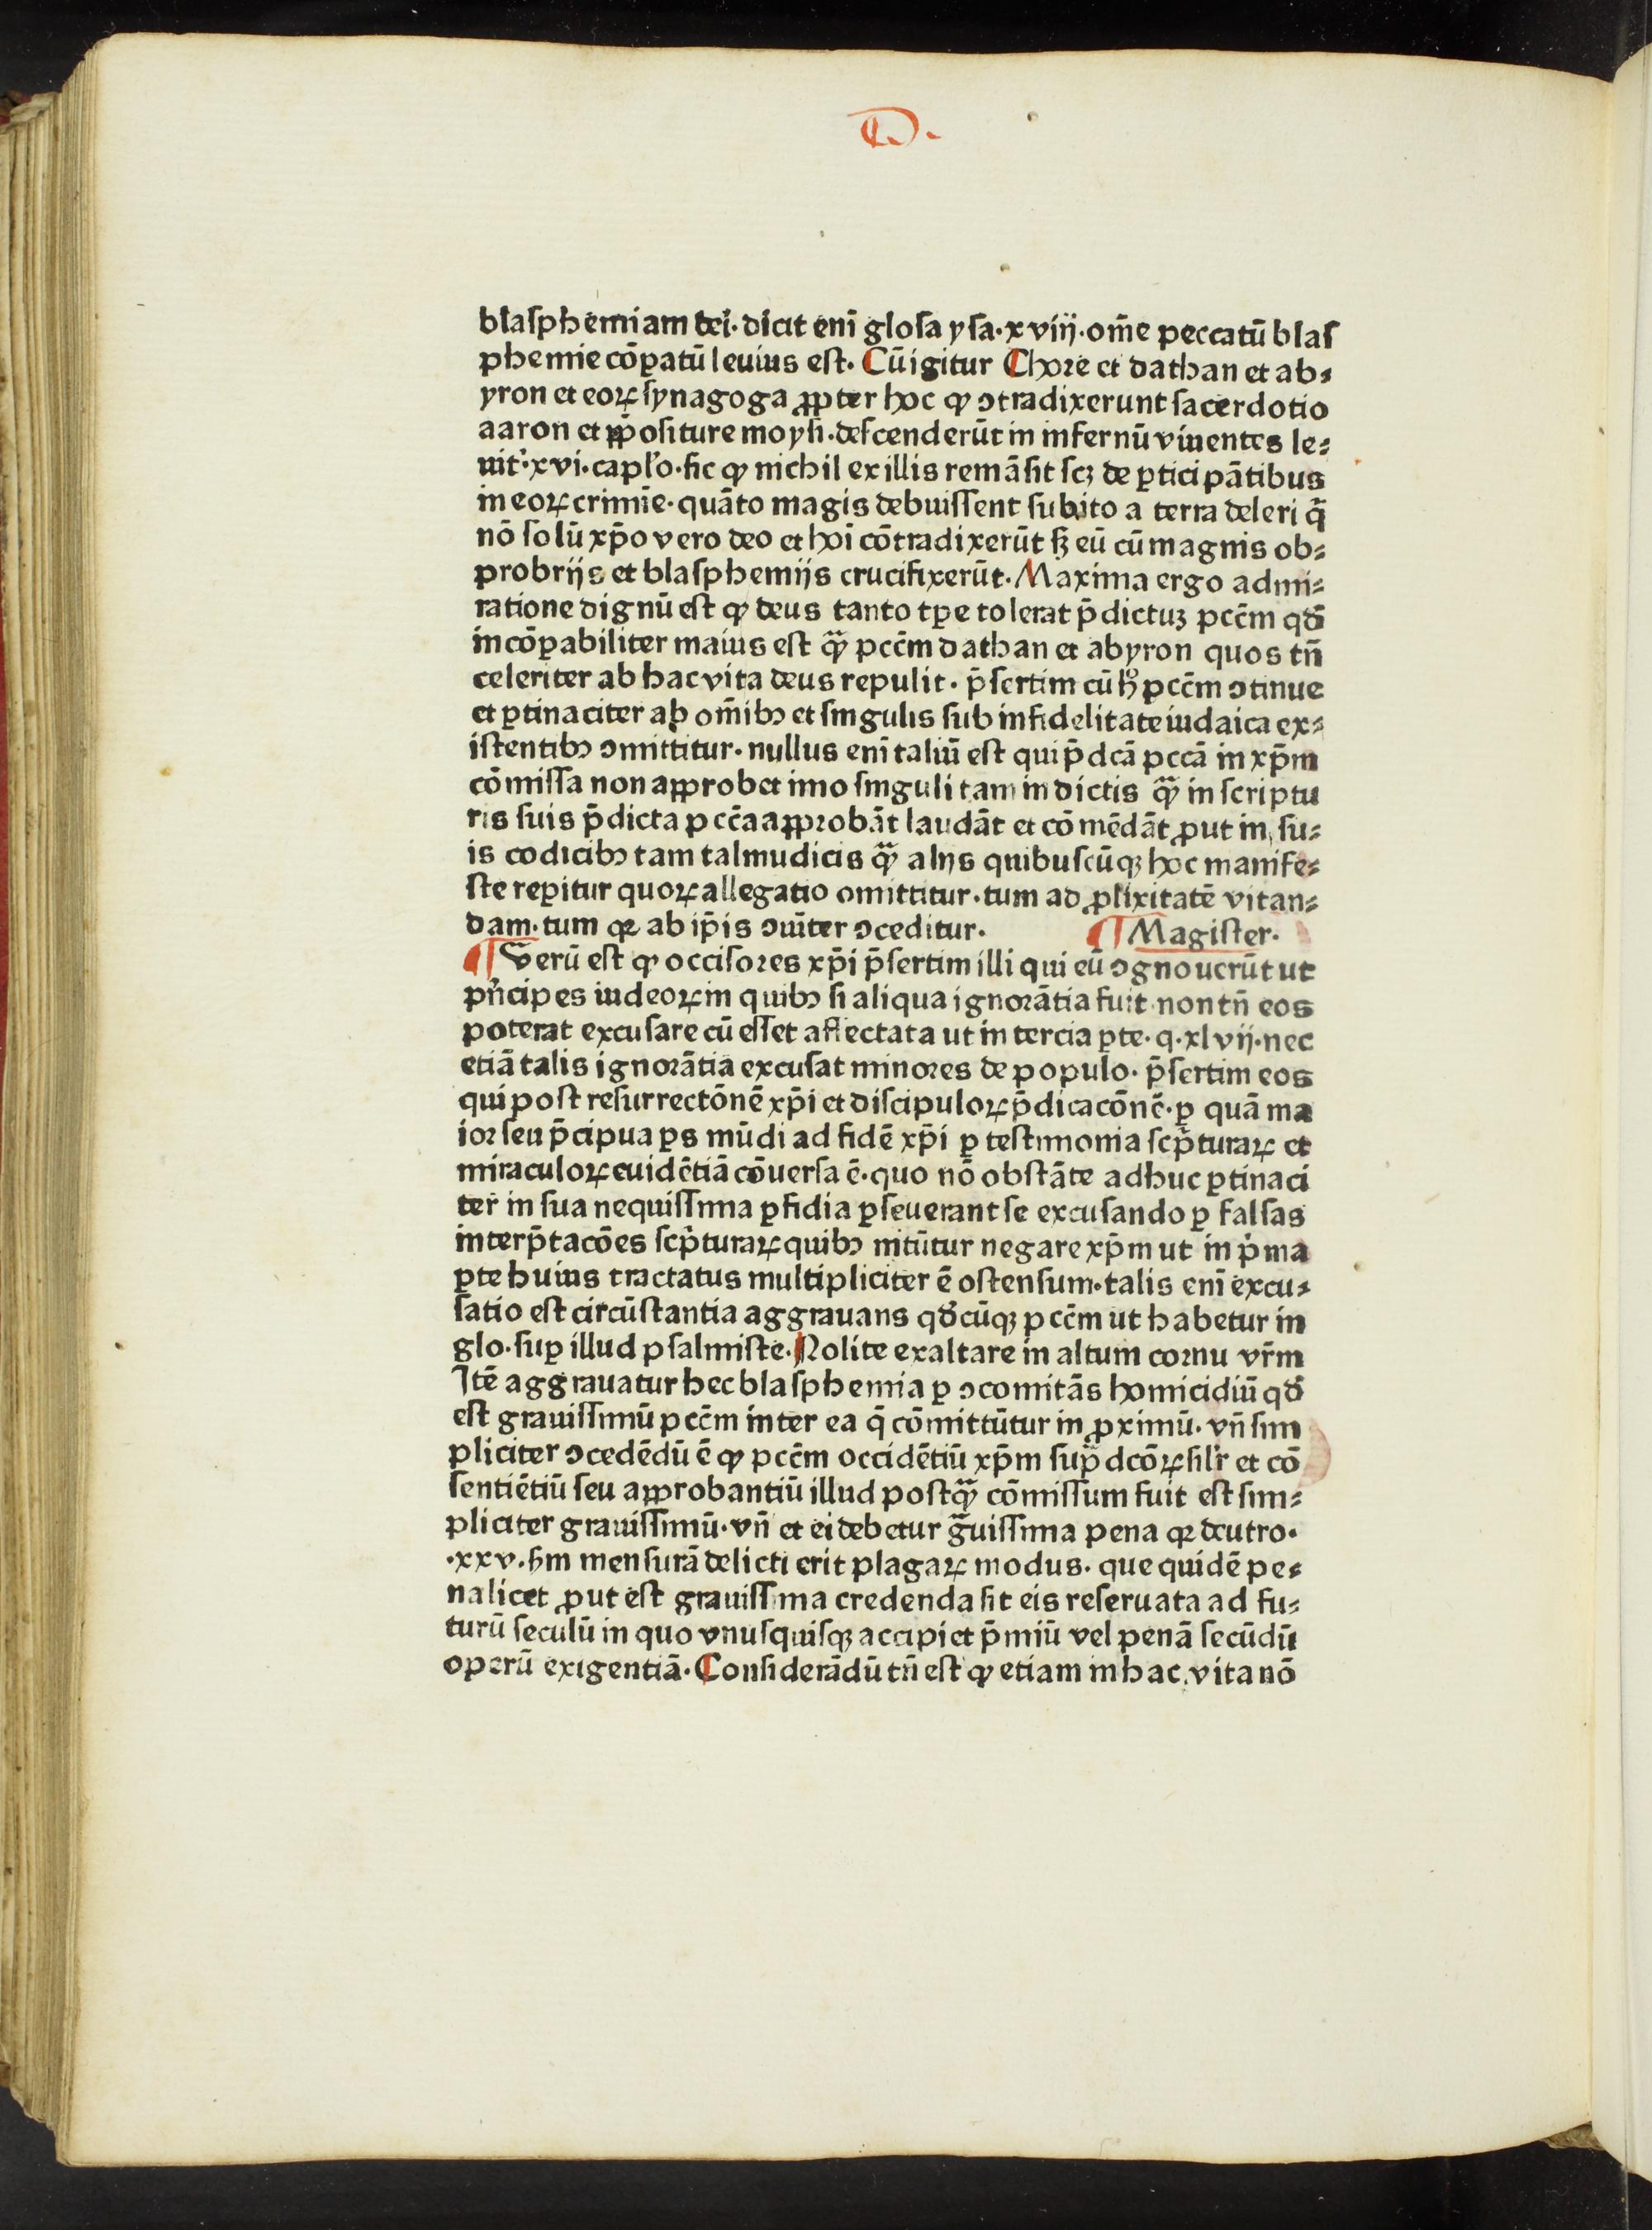 D.
blasphemiam dei· dicit enī glosa ysa·xviij·om̄e peccatū blaſ
phemie cōꝑatū leuius est· Cū igitur Chore et dathan et ab⸗
yron et eoꝝ synagoga ꝓpter hoc ꝙ ↄtradixerunt sacerdotio
aaron et p̄positure moysi·descenderūt in infernū viuentes le⸗
uit᷒·xvi·capl̓o·sic ꝙ nichil ex illis remāsit scꝫ de ꝑticipātibus
in eoꝝ crimīe·quāto magis debuissent subito a terra deleri q̄
nō solū xp̄o vero deo et hoi᷒ cōtradixerūt sꝫ eū cū magnis ob⸗
probrijs et blasphemijs crucifixerūt· Maxima ergo admi⸗
ratione dignū est ꝙ deus tanto tꝑe tolerat p̄dictuꝫ pccm̄ qđ
incōꝑabiliter maius est qꝫ̄ pccm̄ dathan et abyron quos tn̄
celeriter ab hac vita deus repulit· p̄sertim cū ħ᷒ pccm̄ ↄtinue
et ꝑtinaciter ab om̄ibꝯ et singulis sub infidelitate iudaica ex⸗
istentibꝯ ↄmittitur· nullus enī taliū est qui p̄dcā pccā in xp̄m
cōmissa non approbet imo singuli tam in dictis qꝫ̄ in scriptu
ris suis p̄dicta pccā approbāt laudāt et cōmēdāt ꝓut in su⸗
is codicibꝯ tam talmudicis qꝫ̄ alijs quibuscūqꝫ hoc manife⸗
ste reꝑitur quoꝝ allegatio omittitur·tum ad ꝓlixitatē vitan⸗
dam·tum qꝛ ab ip̄is ↄuīter ↄceditur· ¶ Magister·
¶ Verū est ꝙ occisores xp̄i p̄sertim illi qui eū ↄgnouerūt ut
pn̓cipes iudeoꝝ in quibꝯ si aliqua ignorātia fuit non tn̄ eos
poterat excusare cū esset affectata ut in tercia ꝑte·q·xlvij·nec
etiā talis ignorātia excusat minores de populo· p̄sertim eos
qui post resurrectōnē xp̄i et discipuloꝝ p̄dicacōnē·ꝑ quā ma
ior seu p̄cipua ꝑs mūdi ad fidē xp̄i ꝑ testimonia scp̄turaꝝ et
miraculoꝝ euidētiā cōuersa ē·quo nō obstāte adhuc ꝑtinaci
ter in sua nequissima ꝑfidia ꝑseuerant se excusando ꝑ falsas
interp̄tacōes scp̄turaꝝ quibꝯ nitūtur negare xp̄m ut in p̓ma
ꝑte huius tractatus multipliciter ē ostensum·talis enī excu⸗
satio est circūstantia aggrauans qđcūqꝫ pccm̄ ut habetur in
glo·suꝑ illud psalmiste· Nolite exaltare in altum cornu vr̄m
Itē aggrauatur hec blasphemia ꝑ ↄcomitās homicidiū qđ
est grauissimū pccm̄ inter ea q̄ cōmittūtur in ꝓximū·vn̄ sim
pliciter ↄcedēdū ē ꝙ pccm̄ occidētiū xp̄m sup̄dcōꝝ sil̓r et cō
sentiētiū seu approbantiū illud postqꝫ̄ cōmissum fuit est sim⸗
pliciter grauissimū·vn̄ et ei debetur g̃uissima pena qꝛ deutro·
·xxv·sm̄ mensurā delicti erit plagaꝝ modus· que quidē pe⸗
na licet ꝓut est grauissima credenda sit eis reseruata ad fu⸗
turū seculū in quo vnusquisqꝫ accipiet p̄miū vel penā secūdū
operū exigentiā· Considerādū tn̄ est ꝙ etiam in hac vita nō